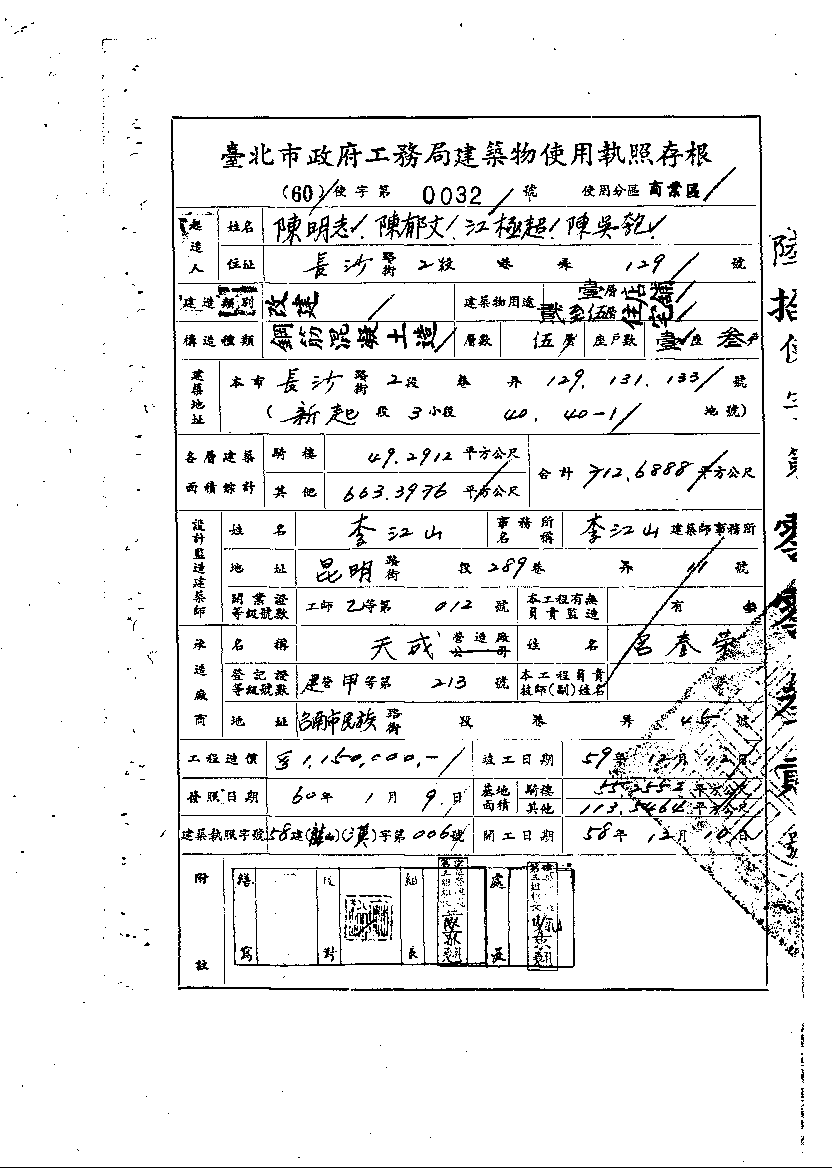 臺北市政府工務局建築物使用執照存根
(60)使字第 0032 號 使用分區 商業區
起造人 姓名 陳明志 陳郁文 江極超 陳吳
住址 長沙 路街 2段 巷 弄 129 號
建造類別 改建 建築物用途 壹層店舖 貳至伍層住宅
構造種類 鋼筋混凝土造 層數 伍層 座戶數 壹座 叁戶
建築地址 本市 長沙 路街 2段 巷 弄 129.131.133 號
(新起 段 3小段 40.40-1 地號)
各層建築面積綜計 騎樓 49.2912 平方公尺 合計 712.6888 平方公尺
其他 663.3976 平方公尺
設計監造建築師 姓名 李江山 事務所名稱 李江山 建築師事務所
地址 昆明 路街 段 289巷 弄 11 號
開業證等級號數 工師 乙等第 012 號 本工程有無負責監造 有
承造廠商 名稱 天成 營造廠公司 姓名 呂奎榮
登記證等級號數 建營甲等第 213 號 本工程負責技師(副)姓名
地址 台南市民族 路街 段 巷 弄 45 號
工程造價 1,150,000,- 竣工日期 59年12月12日
發照日期 60年1月9日 基地面積 騎樓 55.2552 平方公尺
其他 113.5464 平方公尺
建築執照字號 58建()()字第006號 開工日期 58年12月10日
附註 繕寫 校對 組長 處長
陸拾使字第零零